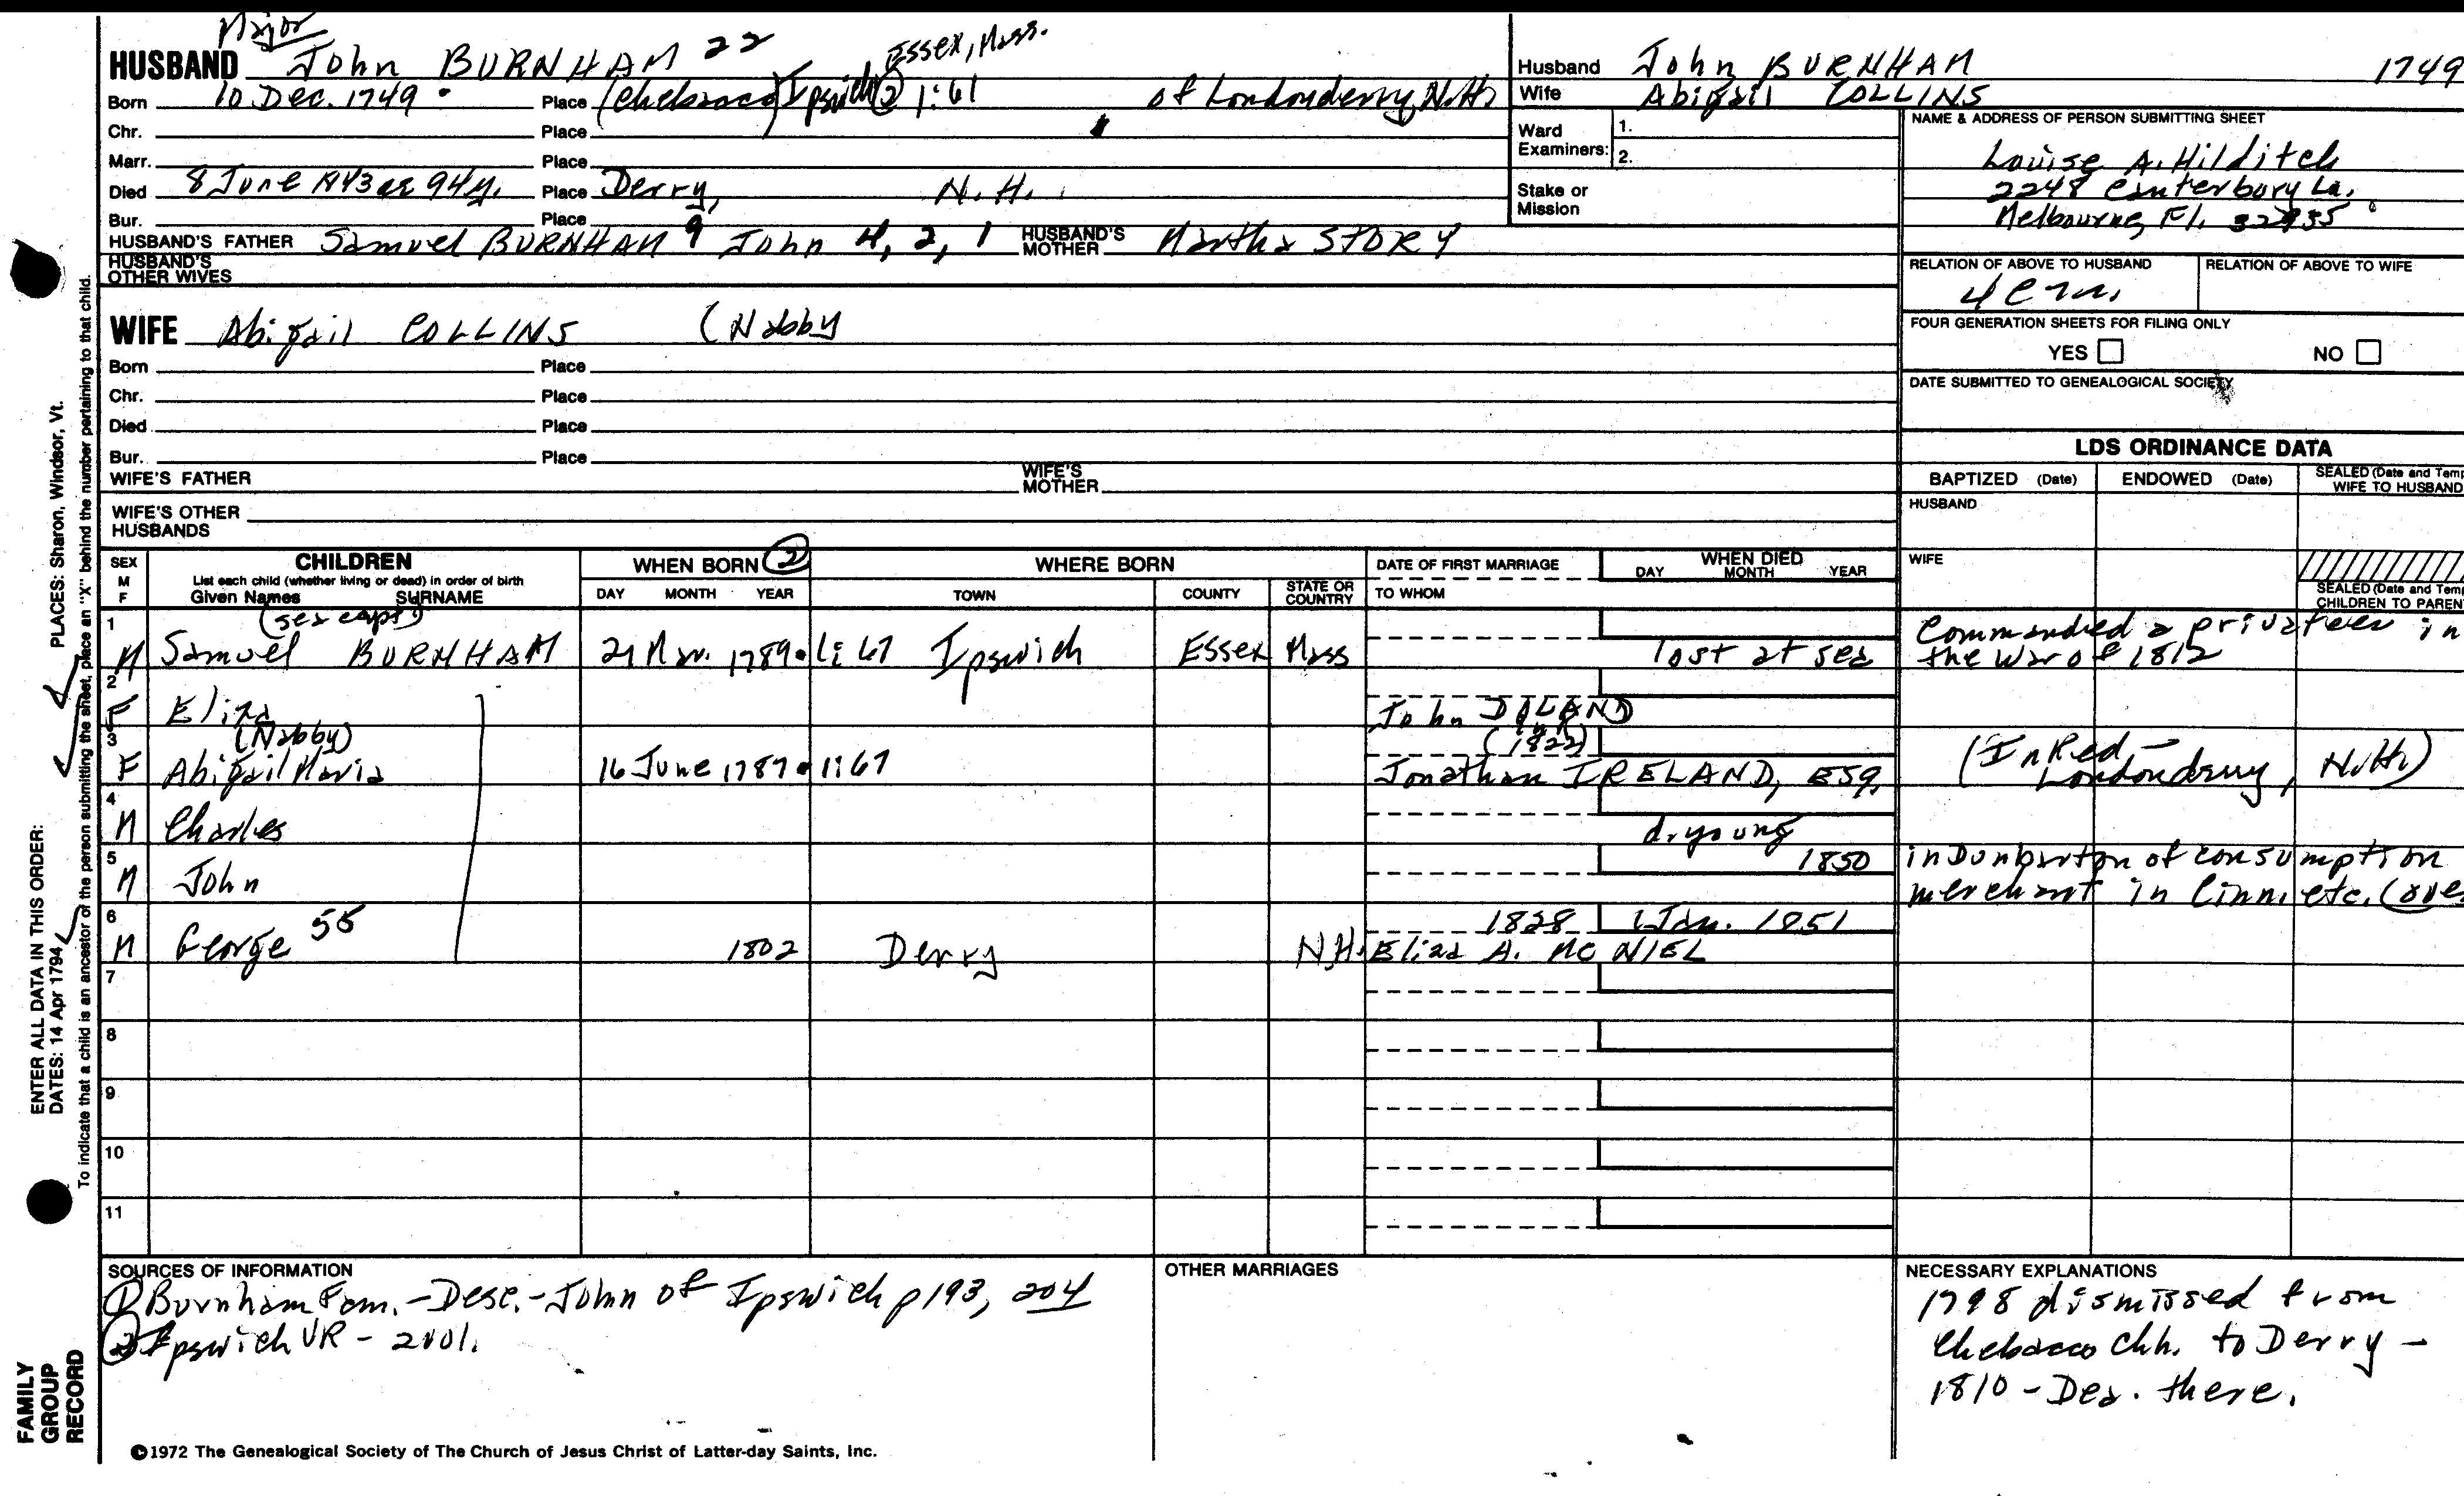 Major
HUSBAND John BURNHAM 22 Essex, Mass.
Born 10 Dec. 1749 Place (Chebacco) Ipswich (2) 1:61 of Londonderry, N.H.
Chr. Place
Marr. Place
Died 8 June 1843 ae 94y. Place Derry, N.H.
Bur. Place
HUSBAND'S FATHER Samuel BURNHAM 9 John 4, 2, 1 HUSBAND'S MOTHER Martha STORY
HUSBAND'S OTHER WIVES
WIFE Abigail COLLINS (Nabby
Born Place
Chr. Place
Died Place
Bur. Place
WIFE'S FATHER WIFE'S MOTHER
WIFE'S OTHER HUSBANDS
Husband John BURNHAM 1749
Wife Abigail COLLINS
Ward Examiners: 1.
2.
Stake or Mission
NAME & ADDRESS OF PERSON SUBMITTING SHEET
Louise A. Hilditch
2248 Canterbury La.
Melbourne, Fl. 32935
RELATION OF ABOVE TO HUSBAND RELATION OF ABOVE TO WIFE
FOUR GENERATION SHEETS FOR FILING ONLY
YES NO
DATE SUBMITTED TO GENEALOGICAL SOCIETY
LDS ORDINANCE DATA
BAPTIZED (Date) ENDOWED (Date) SEALED (Date and Temp
WIFE TO HUSBAND
HUSBAND
WIFE
SEALED (Date and Temp
CHILDREN TO PAREN
SEX M F CHILDREN WHEN BORN (2) WHERE BORN DATE OF FIRST MARRIAGE WHEN DIED
List each child (whether living or dead) in order of birth
Given Names SURNAME DAY MONTH YEAR TOWN COUNTY STATE OR COUNTRY TO WHOM DAY MONTH YEAR
(sea capt)
1 M Samuel BURNHAM 21 Mar. 1789 1:67 Ipswich Essex Mass lost at sea Commanded a privateer in
the War of 1812
2 F Eliza John DILAND
3 (Nabby) (1822)
F Abigail Maria 16 June 1787 1:67 Jonathan IRELAND, ESQ. (In Red - Londonderry, N.H.)
4 M Charles d. young
5 M John 1850 in Dunbarton of consumption
merchant in Cinn. etc. (over
6 M George 55 1802 Derry N.H. 1828 Jan. 1851
Eliza A. MC NIEL
7
8
9
10
11
SOURCES OF INFORMATION
(1) Burnham Fam. - Desc. - John of Ipswich p 193, 204
(2) Ipswich VR - 2 vol.
OTHER MARRIAGES
NECESSARY EXPLANATIONS
1798 dismissed from
Chebacco Chh. to Derry -
1810 - Dea. there.
©1972 The Genealogical Society of The Church of Jesus Christ of Latter-day Saints, Inc.
FAMILY GROUP RECORD
ENTER ALL DATA IN THIS ORDER:
DATES: 14 Apr 1794 PLACES: Sharon, Windsor, Vt.
To indicate that a child is an ancestor of the person submitting the sheet, place an "X" behind the number pertaining to that child.